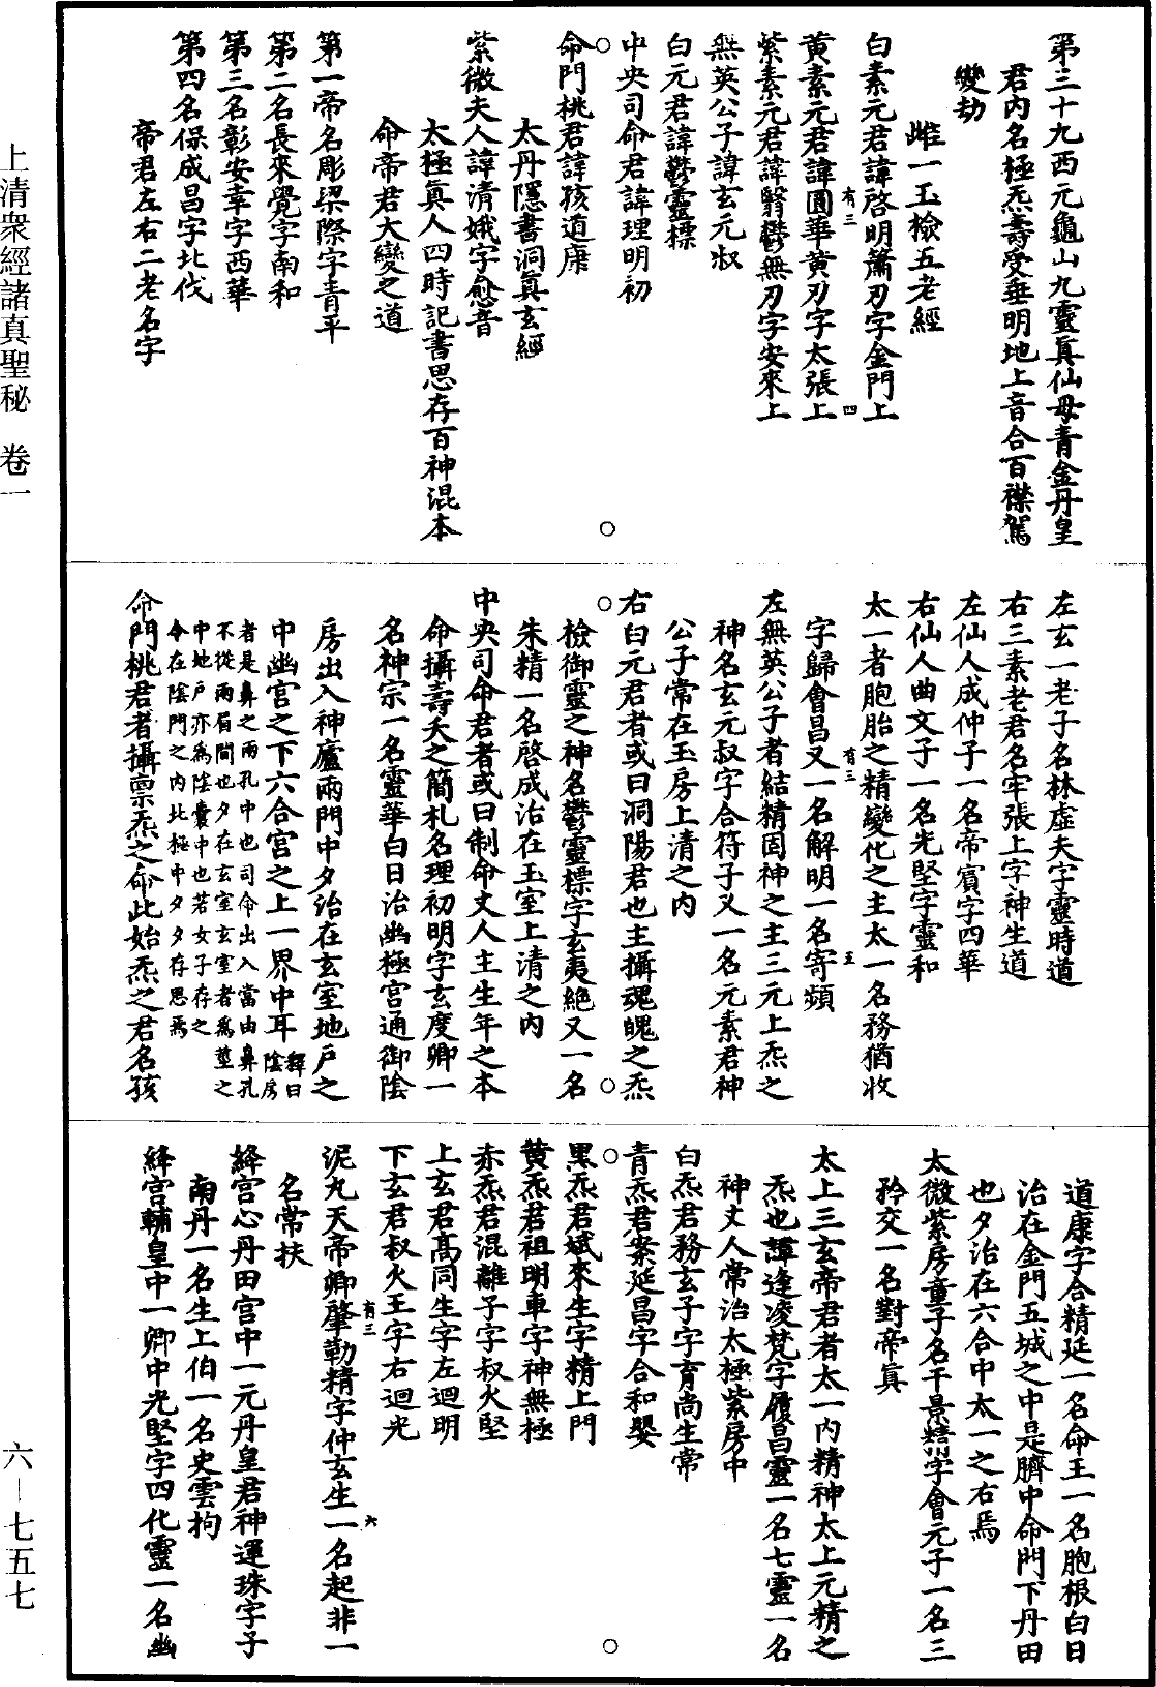 第三十九西元龜山九靈真仙母青金丹皇
君內名極炁壽受垂明地上音合百襟駕
變劫
雌一玉檢五老經
白素元君諱啓明簫刃字金門上
有三
四
黃素元君諱圓華黃刃字太張上
紫素元君諱翳鬱無刃字安來上
無英公子諱玄元叔
白元君諱鬱靈標
中央司命君諱理明初
命門桃君諱孩道康
太丹隱書洞真玄經
紫微夫人諱清娥字愈音
太極真人四時記書思存百神混本
命帝君大變之道
第一帝名彫梁際字青平
第二名長來覺字南和
第三名彰安幸字西華
第四名保成昌字北伐
帝君左右二老名字
左玄一老子名林虛夫字靈時道
右三素老君名牢張上字神生道
左仙人成仲子一名帝賓字四華
右仙人曲文子一名光堅字靈和
太一者胞胎之精變化之主太一名務猶收
有三
五
字歸會昌又一名解明一名寄頻
左無英公子者結精固神之主三元上炁之
神名玄元叔字合符子又一名元素君神
公子常在玉房上清之內
右白元君者或曰洞陽君也主攝魂魄之炁
檢御靈之神名鬱靈標字玄夷絕又一名
朱精一名啓成治在玉室上清之內
中央司命君者或曰制命丈人主生年之本
命攝壽夭之簡札名理初明字玄度卿一
名神宗一名靈華白日治幽極宮通御陰
房出入神廬兩門中夕治在玄室地戶之
中幽宮之下六合宮之上一界中耳
釋曰
陰房
者是鼻之兩孔中也司命出入當由鼻孔
不從兩眉間也夕在玄室玄室者為莖之
中地戶亦為陰囊中也若女子存之
令在陰門之內北極中夕存思焉
命門桃君者攝稟炁之命此始炁之君名孩
道康字合精延一名命王一名胞根白日
治在金門五城之中是臍中命門下丹田
也夕治在六合中太一之右焉
太微紫房童子名干景精字會元子一名三
矜交一名對帝真
太上三玄帝君者太一內精神太上元精之
炁也諱逢凌梵字履昌靈一名七靈一名
神丈人常治太極紫房中
白炁君務玄子字育尚生常
青炁君案延昌字合和嬰
黑炁君斌來生字精上門
黃炁君祖明車字神無極
赤炁君混離子字叔火堅
上玄君高同生字左迴明
下玄君叔火王字右迴光
有三
六
泥丸天帝卿肇勒精字仲玄生一名起非一
名常扶
絳宮心丹田宮中一元丹皇君神運珠字子
南丹一名生上伯一名史雲拘
絳宮輔皇中一卿中光堅字四化靈一名幽
上清衆經諸真聖秘 卷一
六—七五七